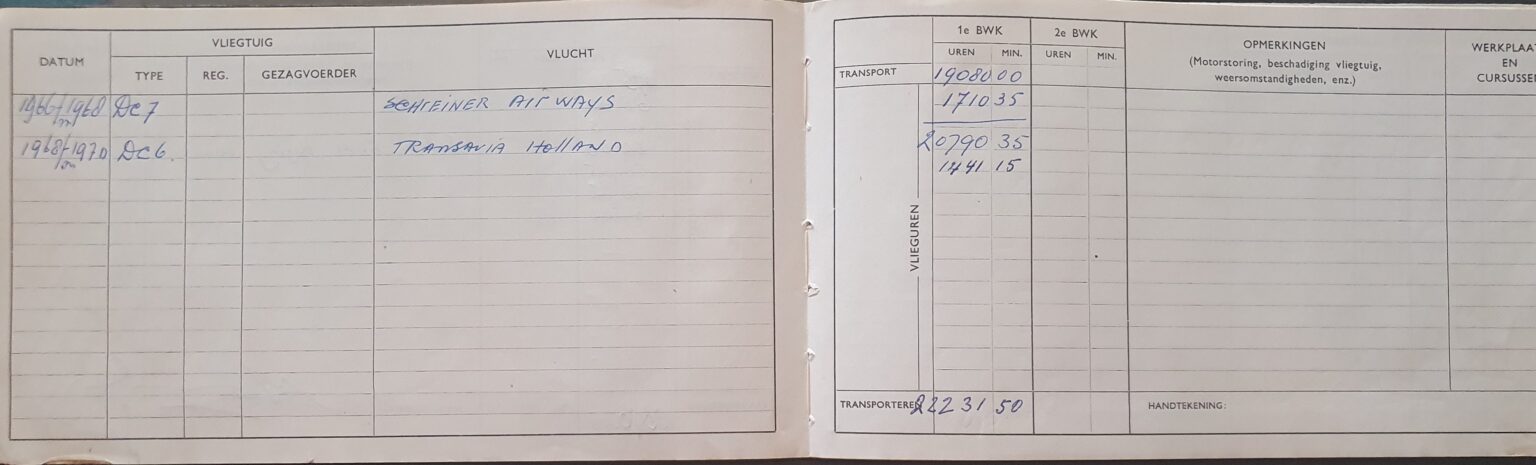 DATUM
VLIEGTUIG
TYPE REG. GEZAGVOERDER
VLUCHT
1966 t/m 1968 DC 7 SCHREINER AIRWAYS
1968 t/m 1970 DC 6. TRANSAVIA HOLLAND
1e BWK 2e BWK
UREN MIN. UREN MIN.
OPMERKINGEN
(Motorstoring, beschadiging vliegtuig,
weersomstandigheden, enz.)
EN
TRANSPORT 19080 00
1710 35
20790 35
1441 15
VLIEGUREN
TRANSPORTEREN 22231 50
HANDTEKENING: